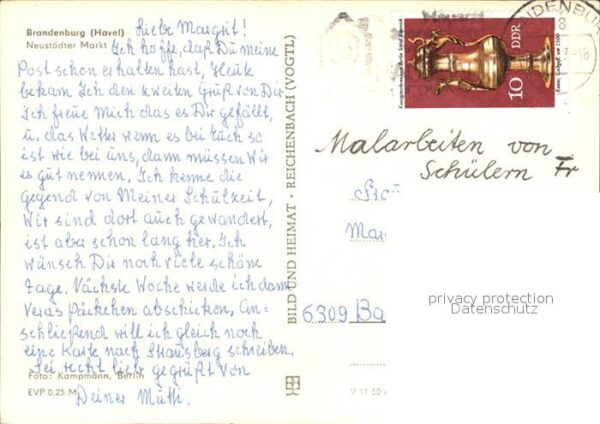 Brandenburg (Havel)
Neustädter Markt
Liebe Margrit!
Ich hoffe, daß Du meine
Post schon erhalten hast, Heute
bekam Ich den zweiten Gruß von Dir
Ich freue Mich das es Dir gefällt,
u. das Wetter wenn es bei Euch so
ist wie bei uns, dann müssen Wir
es gut nennen, Ich kenne die
Gegend von Meiner Schulzeit,
Wir sind dort auch gewandert,
ist aber schon lang her, Ich
wünsch Dir noch viele schöne
Tage. Nächste Woche werde ich dann
Veras Päckchen abschicken, An-
schließend will ich gleich noch
eine Karte nach Strausberg schreiben.
Sei recht lieb gegrüßt von
Deiner Mutti.
Foto: Kampmann, Berlin
EVP 0,25 M
BILD UND HEIMAT · REICHENBACH (VOGTL)
V 11 50
BRANDENBURG
8
7-18
DDR
10
Malarbeiten von
Schülern Fr
Mar
6309 Ba
privacy protection
Datenschutz